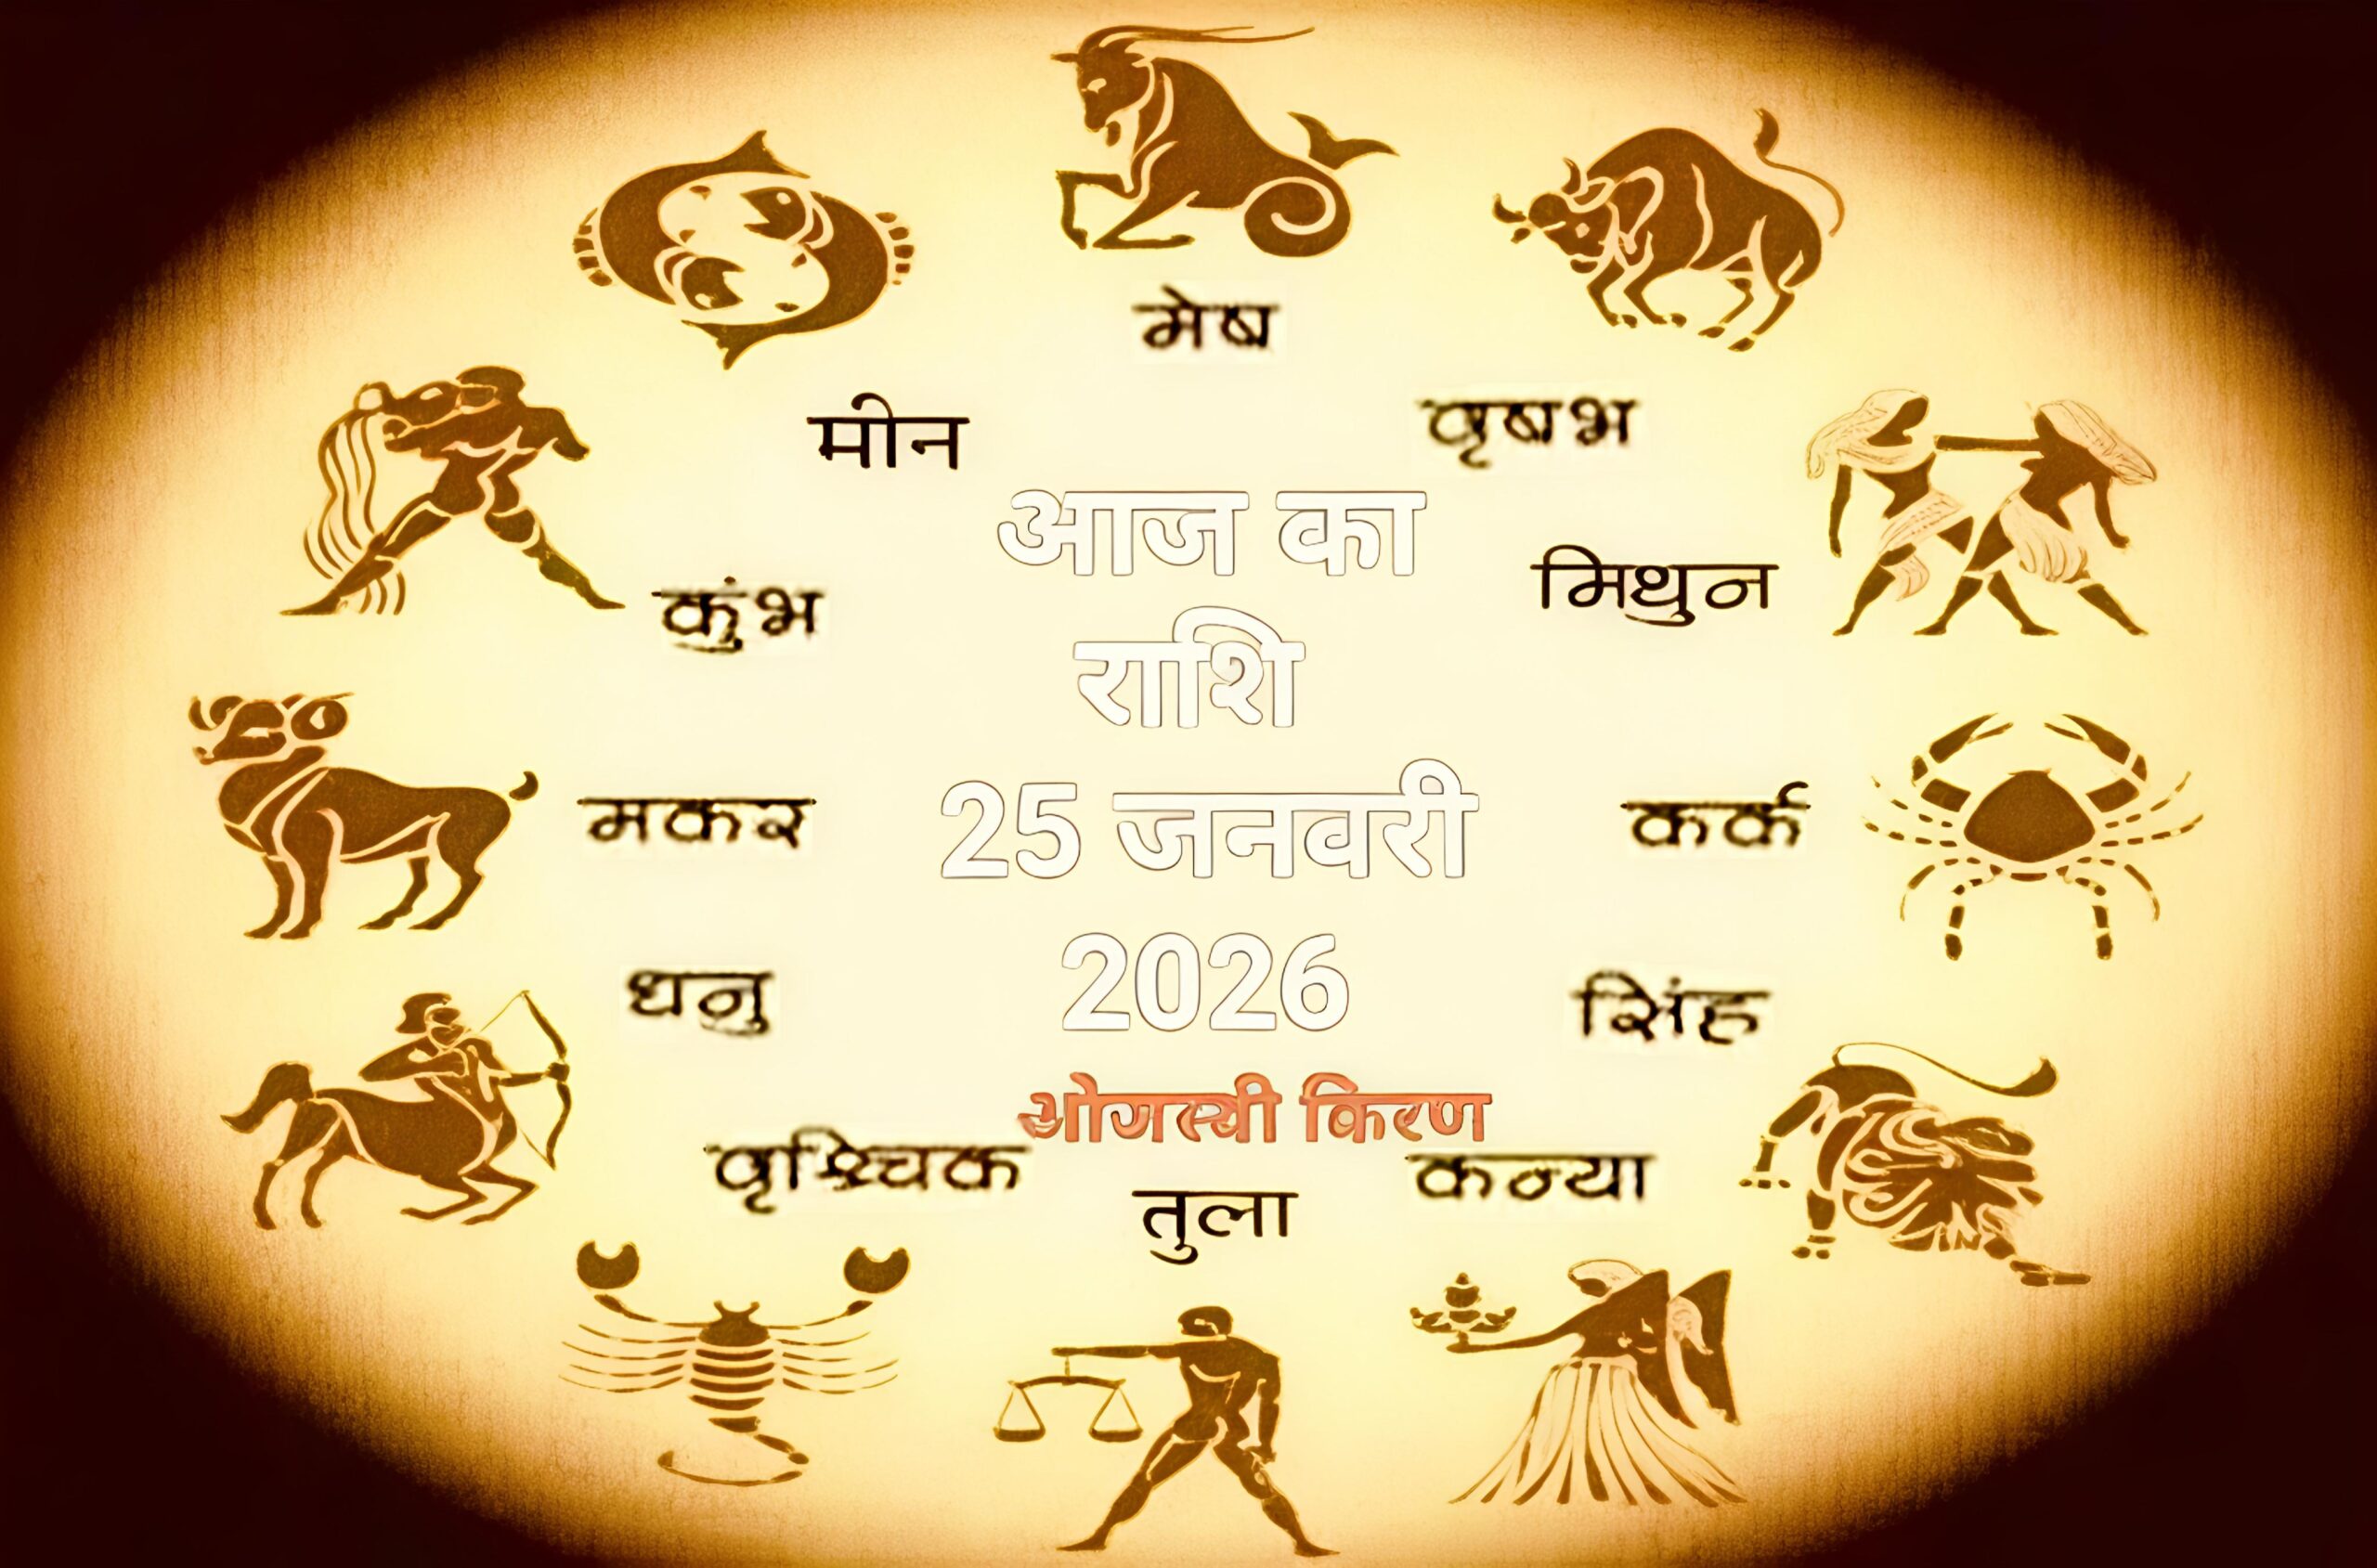 मेष
वृषभ
मीन
आज का
मिथुन
कुंभ
राशि
मकर
25 जनवरी
कर्क
धनु
2026
सिंह
ओजस्वी किरण
वृश्चिक
कन्या
तुला